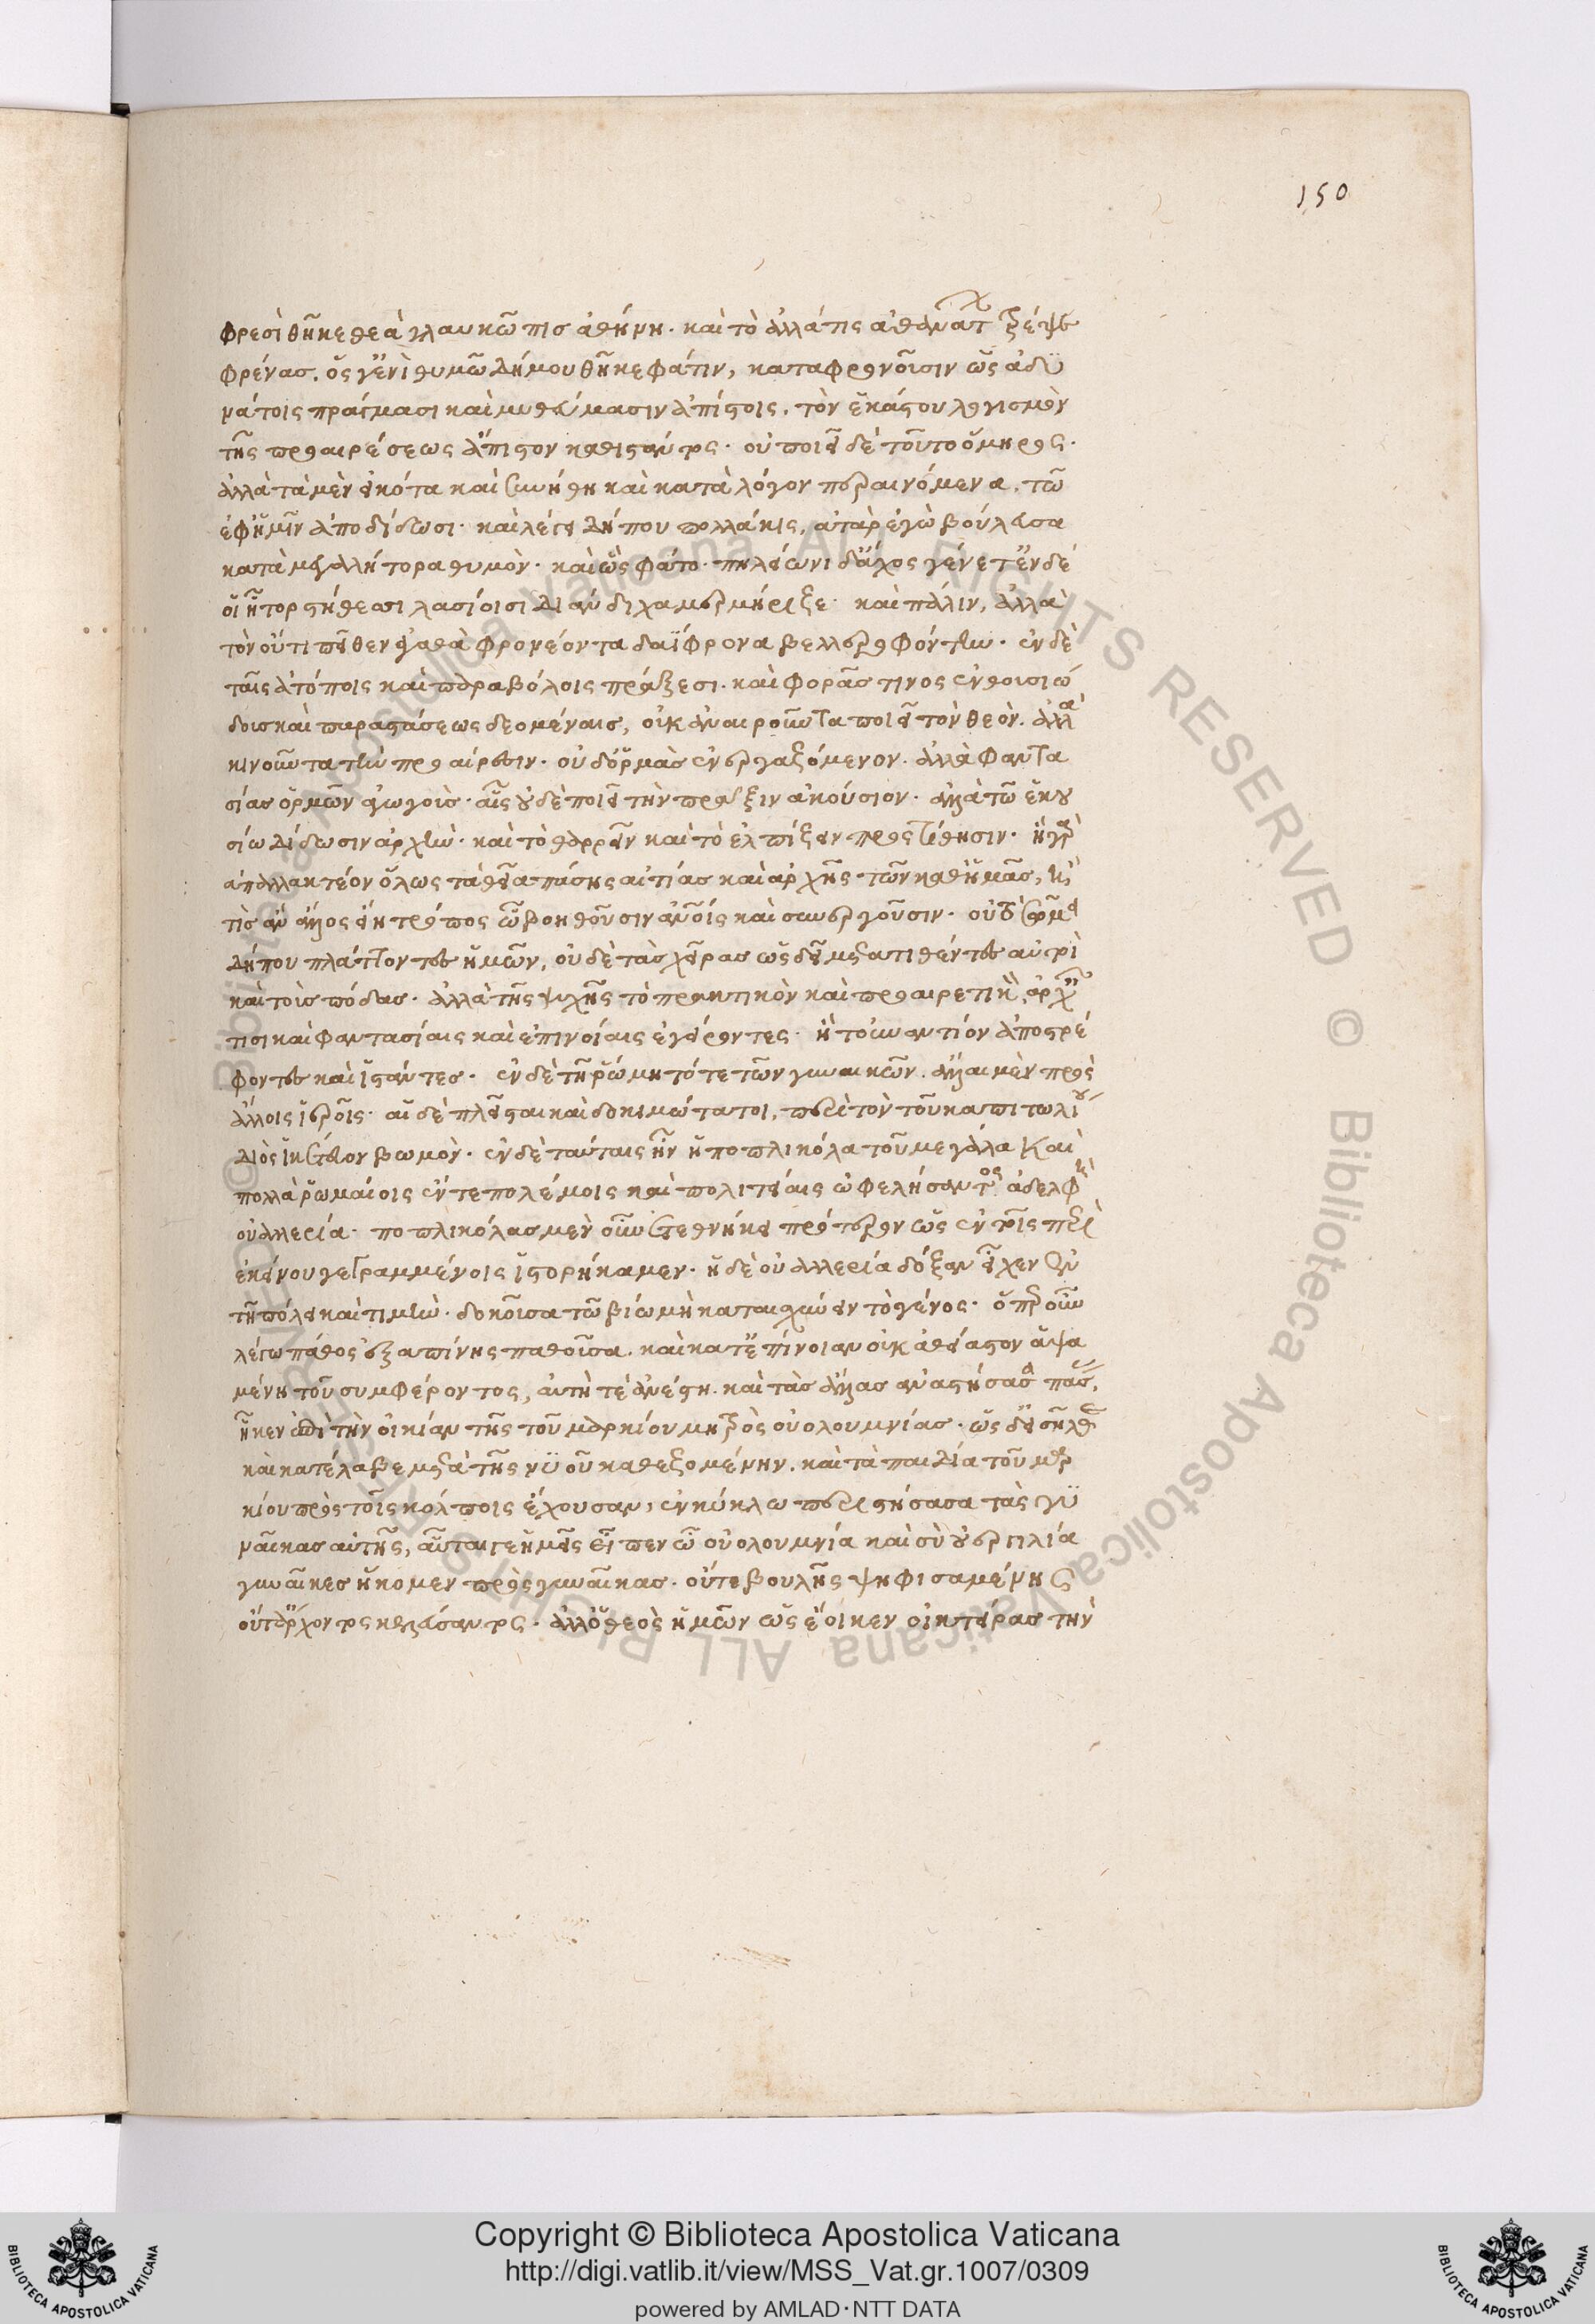 150
φρεσὶ θῆκε θεὰ γλαυκῶπις ἀθήνη. καὶ τὸ ἀλλά τις ἀθανάτων τρέψε
φρένας, ὅς γ' ἐνὶ θυμῶ δήμου θῆκε φάτιν, καταφρονοῦσιν ὡς ἀδυ
νάτοις πράγμασι καὶ μυθεύμασιν ἀπίστοις, τὸν ἑκάστου λογισμὸν
τῆς προαιρέσεως ἄπιστον καθιστάντος. οὐ ποιεῖ δὲ τοῦτο ὅμηρος.
ἀλλὰ τὰ μὲν εἰκότα καὶ συνήθη καὶ κατὰ λόγον περαινόμενα, τῶ
ἐφ' ἡμῖν ἀποδίδωσι. καὶ λέγει δήπου πολλάκις, αὐτὰρ ἐγὼ βούλευσα
κατὰ μεγαλήτορα θυμὸν. καὶ ὣς φάτο. πηλείωνι δ' ἄχος γένετ' ἐν δέ
οἱ ἦτορ στήθεσσι λασίοισι διάνδιχα μερμήριξε. καὶ πάλιν, ἀλλὰ
τὸν οὔτι πεῖθεν ἀγαθὰ φρονέοντα δαΐφρονα βελλεροφόντην. ἐν δὲ
ταῖς ἀτόποις καὶ παραβόλοις πράξεσι. καὶ φορᾶς τινος ἐνθουσιώ
δους καὶ παραστάσεως δεομέναις, οὐκ ἀναιροῦντα ποιεῖ τὸν θεὸν. ἀλλὰ
κινοῦντα τὴν προαίρεσιν. οὐδ' ὁρμὰς ἐνεργαζόμενον. ἀλλὰ φαντα
σίας ὁρμῶν ἀγωγοὺς. αἷς οὐδὲ ποιεῖ τὴν πρᾶξιν ἀκούσιον. ἀλλὰ τῶ ἑκου
σίω δίδωσιν ἀρχὴν. καὶ τὸ θαρρεῖν καὶ τὸ ἐλπίζειν προστίθησιν. ἢ γὰρ
ἀπαλλακτέον ὅλως τὰ θεῖα πάσης αἰτίας καὶ ἀρχῆς τῶν καθ' ἡμᾶς, ἢ
τίς ἂν ἄλλος εἴη τρόπος ὧ βοηθοῦσιν ἀνθρώποις καὶ συνεργοῦσιν. οὐ τὸ σῶμα
δήπου πλάττοντες ἡμῶν, οὐδὲ τὰς χεῖρας ὡς δεῖ μετατιθέντες αὐτοὶ
καὶ τοὺς πόδας. ἀλλὰ τῆς ψυχῆς τὸ πρακτικὸν καὶ προαιρετικὸν, ἀρχαῖς
τισι καὶ φαντασίαις καὶ ἐπινοίαις ἐγείροντες. ἢ τοὐναντίον ἀποστρέ
φοντες καὶ ἱστάντες. ἐν δὲ τῆ ῥώμη τότε τῶν γυναικῶν. ἄλλαι μὲν πρὸς
ἄλλοις ἱεροῖς. αἱ δὲ πλεῖσται καὶ δοκιμώτατοι, περὶ τὸν τοῦ καπιτωλίου
διὸς ἱκέτευον βωμὸν. ἐν δὲ ταύταις ἦν ἡ ποπλικόλα τοῦ μεγάλα καὶ
πολλὰ ῥωμαίοις ἔν τε πολέμοις καὶ πολιτείαις ὠφελήσαντος ἀδελφὴ
οὐαλλερία. ποπλικόλας μὲν οὖν ἐτεθνήκει πρότερον ὡς ἐν τοῖς περὶ
ἐκείνου γεγραμμένοις ἱστορήκαμεν. ἡ δὲ οὐαλλερία δόξαν εἶχεν ἐν
τῆ πόλει καὶ τιμὴν. δοκοῦσα τῶ βίω μὴ καταισχύνειν τὸ γένος. ὅπερ οὖν
λέγω πάθος ἐξαπίνης παθοῦσα. καὶ κατ' ἐπίνοιαν οὐκ ἀθείαστον ἁψα
μένη τοῦ συμφέροντος, αὐτή τε ἀνέστη. καὶ τὰς ἄλλας ἀναστήσασα πάσας,
ἧκεν ἐπὶ τὴν οἰκίαν τῆς τοῦ μαρκίου μητρὸς οὐολουμνίας. ὡς δ' εἰσῆλθε
καὶ κατέλαβε μετὰ τῆς νυοῦ καθεζομένην. καὶ τὰ παιδία τοῦ μαρ
κίου πρὸς τοῖς κόλποις ἔχουσαν, ἐν κύκλω περιστήσασα τὰς γυ
ναῖκας αὐτῆς, αὗταί γε ἡμεῖς εἶπεν ὦ οὐολουμνία καὶ σὺ οὐεργιλία
γυναῖκες ἥκομεν πρὸς γυναῖκας. οὔτε βουλῆς ψηφισαμένης
οὔτ' ἄρχοντος κελεύσαντος. ἀλλ' ὁ θεὸς ἡμῶν ὡς ἔοικεν οἰκτείρας τὴν
Copyright © Biblioteca Apostolica Vaticana
http://digi.vatlib.it/view/MSS_Vat.gr.1007/0309
powered by AMLAD·NTT DATA